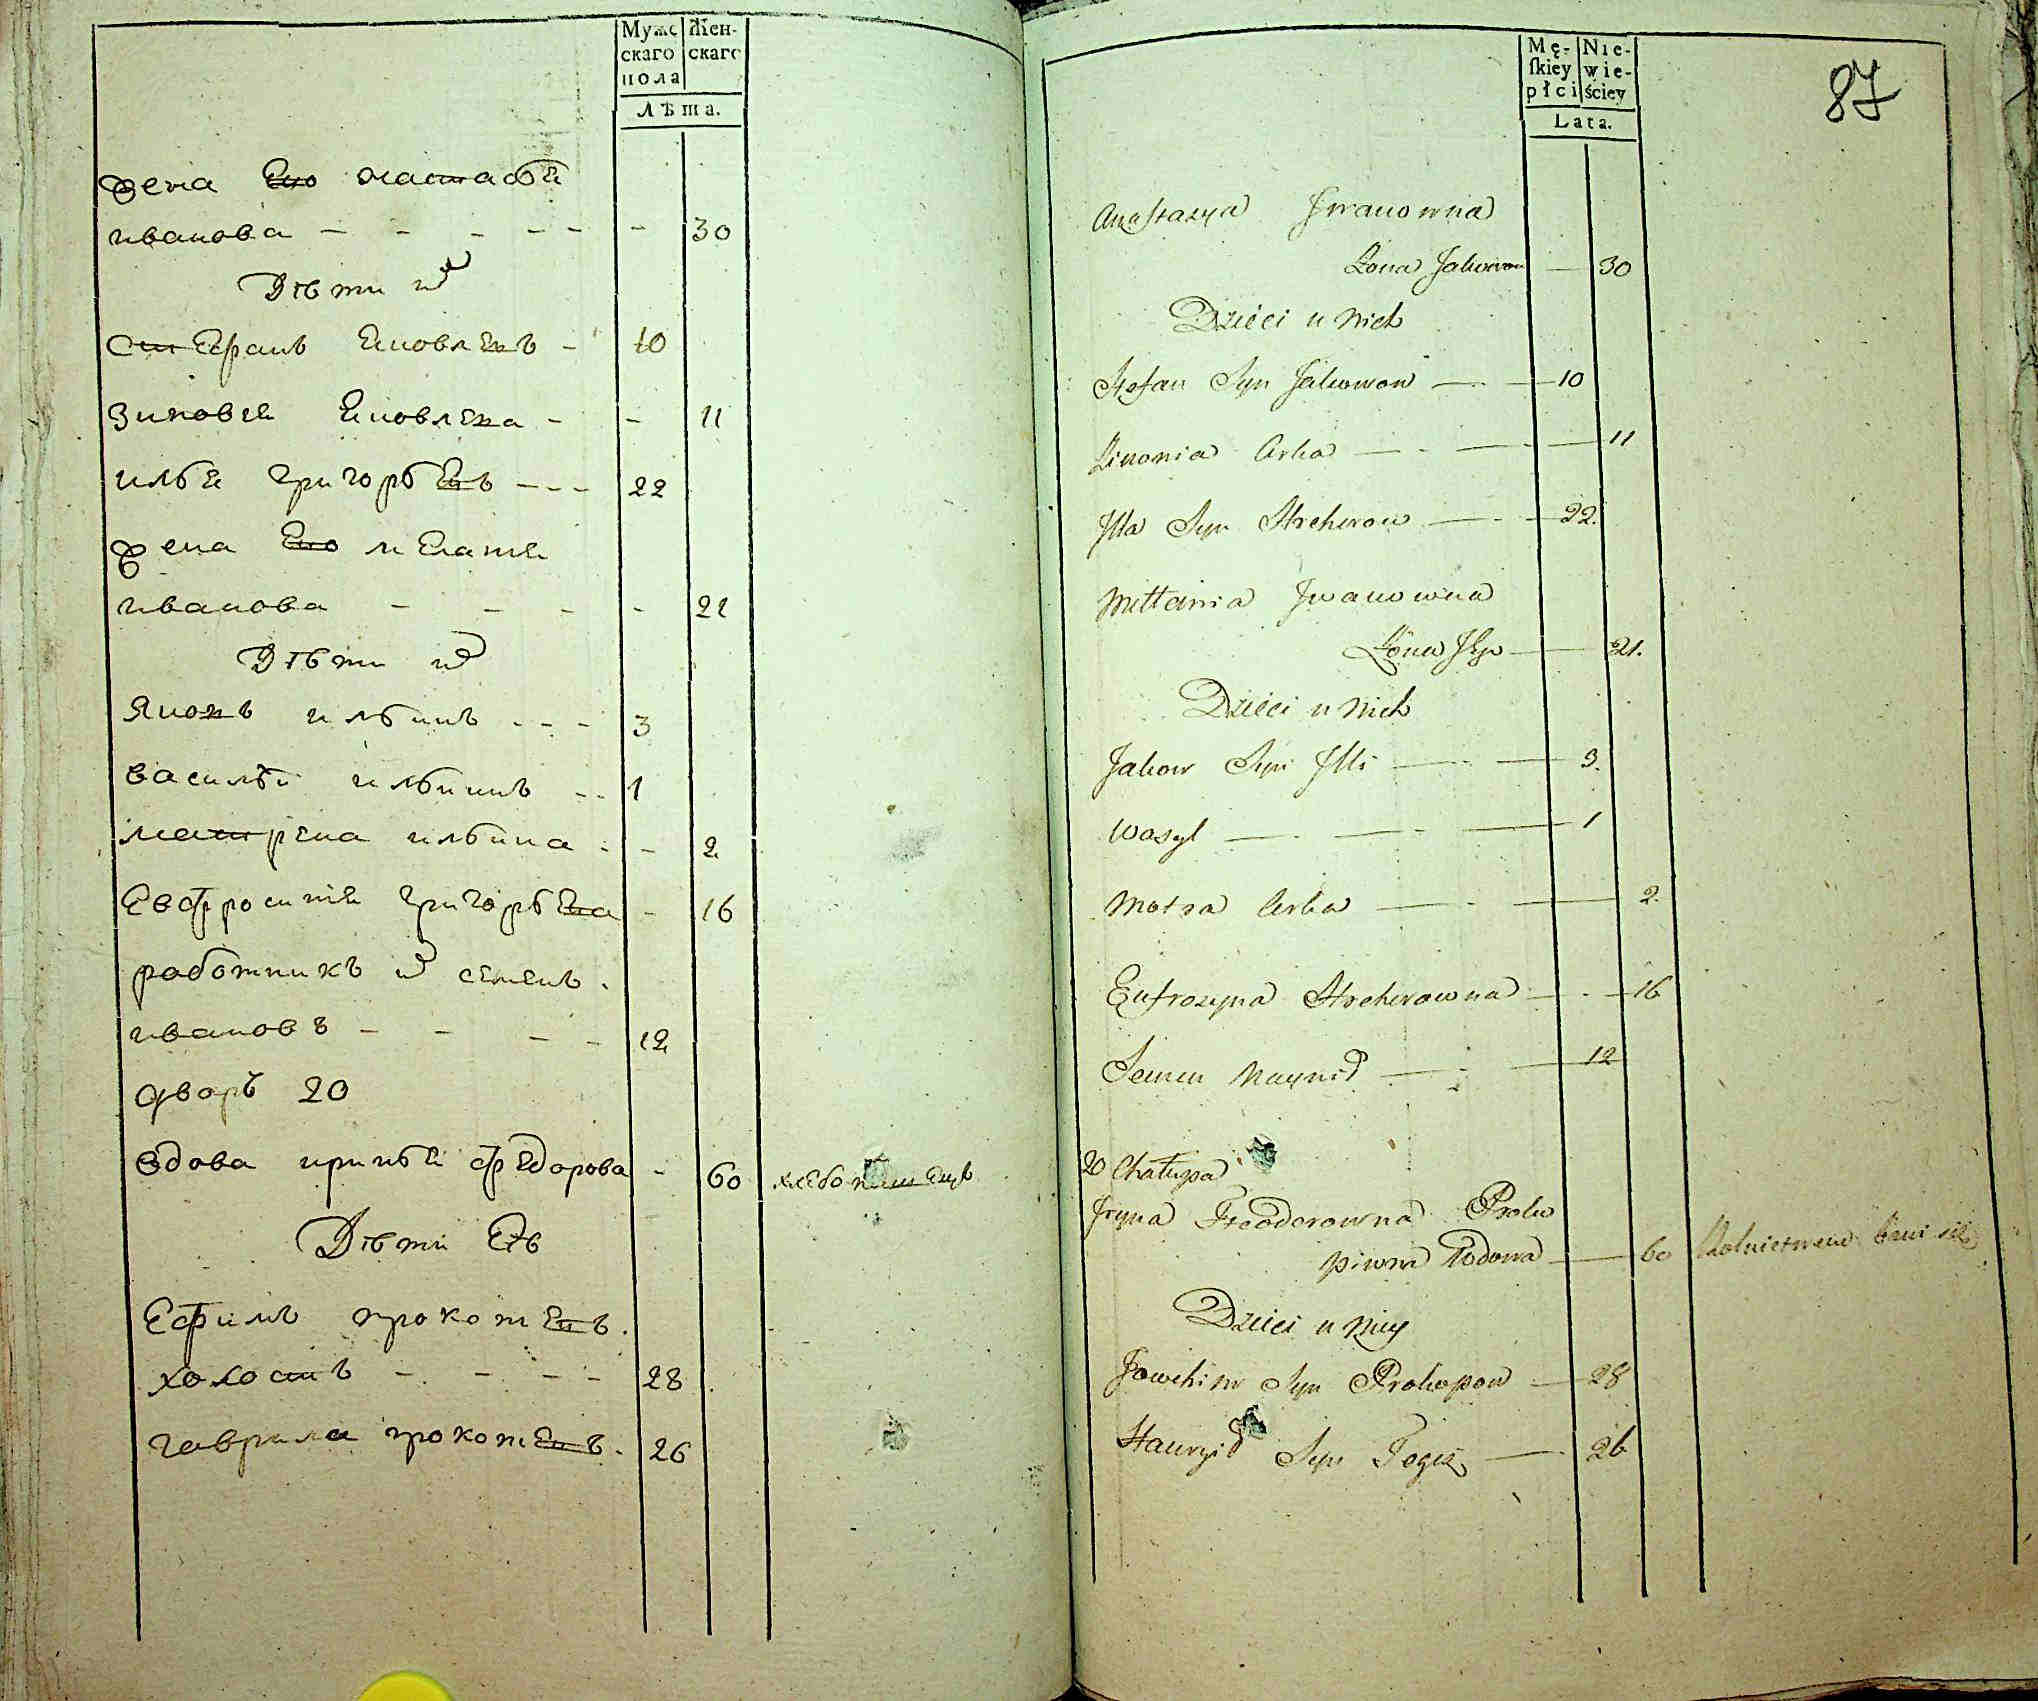 Мужс
скаго
пола
Жен-
скаго
Лѣта.
жена Его настасья
иванова - - - - - - 30
Дѣти их
Стефанъ Яковлевъ - 10
Зиновья Яковлева - - 11
илья григорьевъ - - - 22
жена Его мелания
иванова - - - - 21
Дѣти их
Яковъ ильинъ - - - 3
василѣй ильинъ - - 1
матрена ильина - - 2
Евфросиния григорьева - 16
работникъ их семенъ
ивановъ - - - - 12
дворъ 20
вдова иринья федорова - 60 хлебопашецъ
Дѣти Еѣ
Ефимъ прокопьевъ.
холостъ - - - - 28
гаврила прокопьевъ. 26
87
Mę-
skiey
płci
Nie-
wie-
ściey
Lata.
Anastazya Jwanowna
Żona Jakowow — 30
Dzieci u Nich
Stefan Syn Jakowow — 10
Zinowia Corka — 11
Jlla Syn Hrehorow — 22.
Mellania Jwanowna
Żona Jlji — 21.
Dzieci u Nich
Jakow Syn Jlli — 3.
Wasyl — 1
Motra Corka — 2.
Eufrozyna Hrehorowna — 16
Semen Naymit — 12
20 Chałupa
Jryna Fteodorowna Proko
piowa Wdowa — 60 Rolnictwem bawi się
Dzieci u Niey
Jowchim Syn Prokopow — 28
Hawryło Syn Tegoż — 26